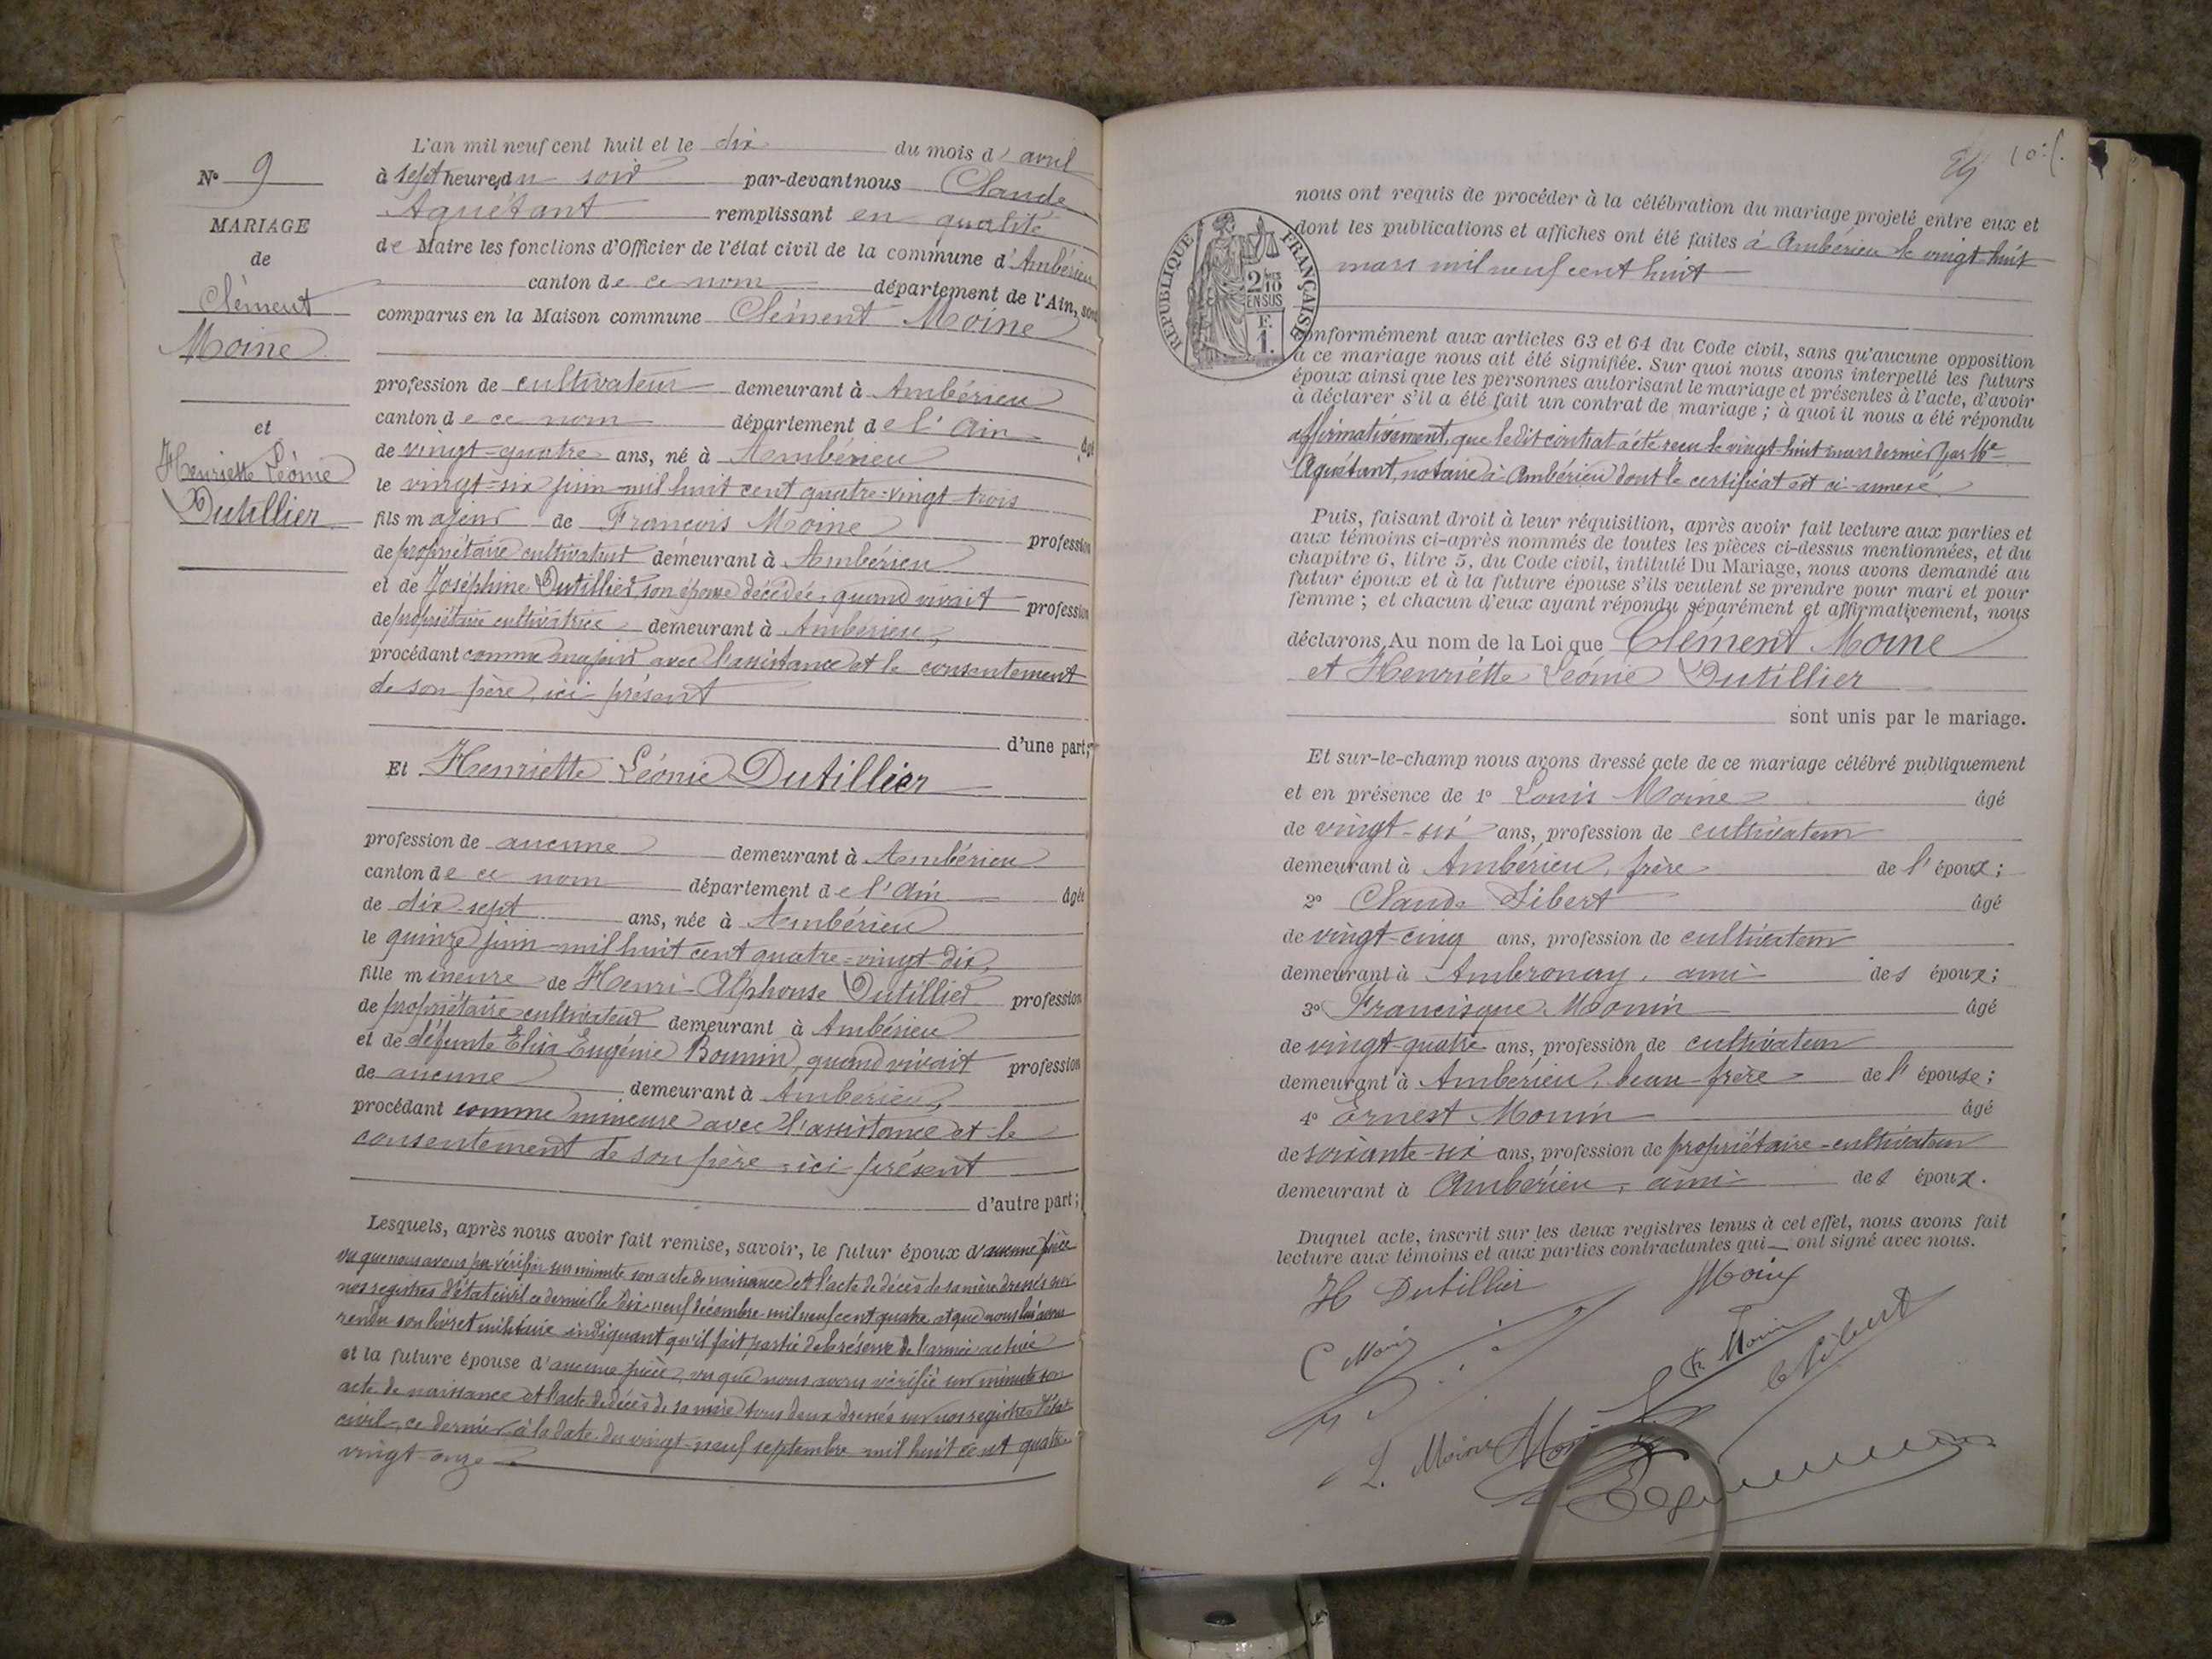 N° 9
MARIAGE
de
Clément
Moine
et
Henriette Léonie
Dutillier
L'an mil neuf cent huit et le dix du mois d' avril
à sept heures du soir par-devant nous Claude
Aguétant remplissant en qualité
de Maire les fonctions d'Officier de l'état civil de la commune d'Ambérieu
canton de ce nom département de l'Ain, sont
comparus en la Maison commune Clément Moine
profession de cultivateur demeurant à Ambérieu
canton de ce nom département de l'Ain âgé
de vingt-quatre ans, né à Ambérieu
le vingt-six juin mil huit cent quatre-vingt-trois
fils majeur de François Moine profession
de propriétaire cultivateur demeurant à Ambérieu
et de Joséphine Dutillier, son épouse décédée, quand vivait profession
de propriétaire cultivatrice demeurant à Ambérieu,
procédant comme majeur avec l'assistance et le consentement
de son père, ici présent
d'une part;
Et Henriette Léonie Dutillier
profession de aucune demeurant à Ambérieu
canton de ce nom département de l'Ain âgée
de dix-sept ans, née à Ambérieu
le quinze juin mil huit cent quatre-vingt-dix,
fille mineure de Henri-Alphonse Dutillier profession
de propriétaire cultivateur demeurant à Ambérieu
et de défunte Elisa Eugénie Bonnin, quand vivait profession
de aucune demeurant à Ambérieu,
procédant comme mineure avec l'assistance et le
consentement de son père, ici présent
d'autre part;
Lesquels, après nous avoir fait remise, savoir, le futur époux d'aucune pièce
vu que nous avons pu vérifier sur minute son acte de naissance et l'acte de décès de sa mère dressés sur
nos registres d'état civil ce dernier le dix-neuf décembre mil neuf cent quatre et que nous lui avons
rendu son livret militaire indiquant qu'il fait partie de la réserve de l'armée active
et la future épouse d'aucune pièce, vu que nous avons vérifié sur minute son
acte de naissance et l'acte de décès de sa mère tous deux dressés sur nos registres d'état
civil, ce dernier à la date du vingt-neuf septembre mil huit cent quatre
vingt-onze
nous ont requis de procéder à la célébration du mariage projeté entre eux et
dont les publications et affiches ont été faites à Ambérieu le vingt-huit
mars mil neuf cent huit
RÉPUBLIQUE FRANÇAISE
2/10
EN SUS
F.
1.
conformément aux articles 63 et 64 du Code civil, sans qu'aucune opposition
à ce mariage nous ait été signifiée. Sur quoi nous avons interpellé les futurs
époux ainsi que les personnes autorisant le mariage et présentes à l'acte, d'avoir
à déclarer s'il a été fait un contrat de mariage ; à quoi il nous a été répondu
affirmativement, que ledit contrat a été reçu le vingt-huit mars dernier par Me
Aguétant, notaire à Ambérieu dont le certificat est ci-annexé.
Puis, faisant droit à leur réquisition, après avoir fait lecture aux parties et
aux témoins ci-après nommés de toutes les pièces ci-dessus mentionnées, et du
chapitre 6, titre 5, du Code civil, intitulé Du Mariage, nous avons demandé au
futur époux et à la future épouse s'ils veulent se prendre pour mari et pour
femme ; et chacun d'eux ayant répondu séparément et affirmativement, nous
déclarons, Au nom de la Loi que Clément Moine
et Henriette Léonie Dutillier
sont unis par le mariage.
Et sur-le-champ nous avons dressé acte de ce mariage célébré publiquement
et en présence de 1° Louis Moine âgé
de vingt-six ans, profession de cultivateur
demeurant à Ambérieu, frère de l'époux;
2° Claude Sibert âgé
de vingt-cinq ans, profession de cultivateur
demeurant à Ambronay, ami des époux;
3° Francisque Monin âgé
de vingt-quatre ans, profession de cultivateur
demeurant à Ambérieu, beau-frère de l'épouse;
4° Ernest Monin âgé
de soixante-six ans, profession de propriétaire-cultivateur
demeurant à Ambérieu, ami des époux.
Duquel acte, inscrit sur les deux registres tenus à cet effet, nous avons fait
lecture aux témoins et aux parties contractantes qui ont signé avec nous.
H Dutillier
L. Moine